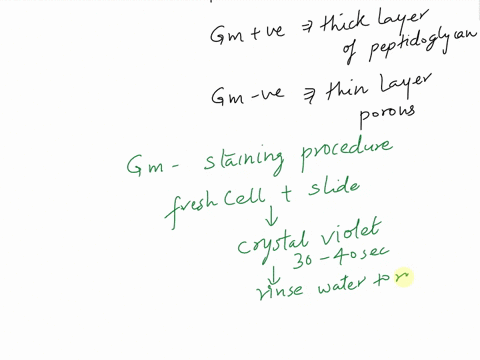 Gm +ve ⇒ thick layer
of peptidoglycan
Gm -ve ⇒ thin layer
porous
Gm - staining procedure
fresh cell + slide
↓
crystal violet
30 - 40 sec
↓
rinse water to r